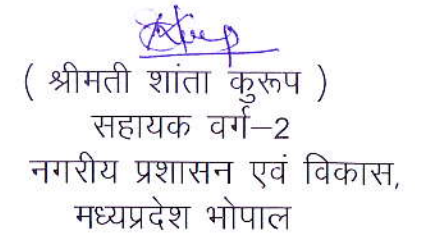 ( श्रीमती शांता कुरूप )
सहायक वर्ग–2
नगरीय प्रशासन एवं विकास,
मध्यप्रदेश भोपाल